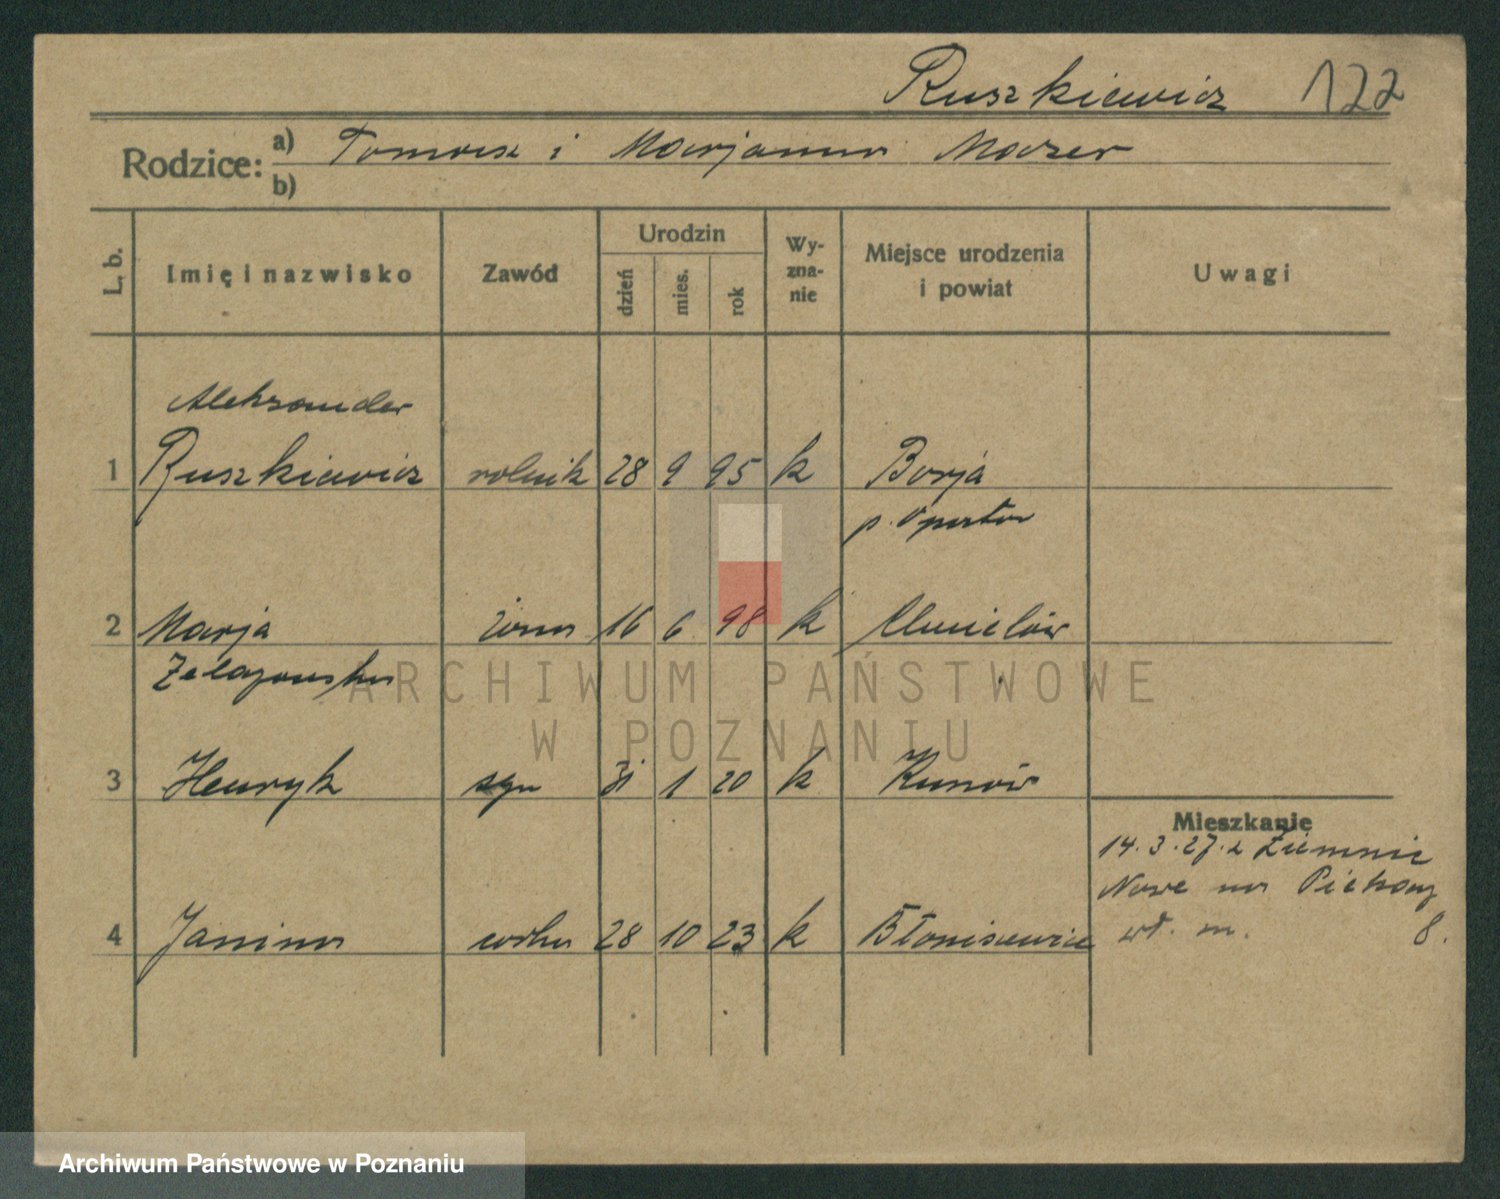 Ruszkiewicz 122
Rodzice: a) Tomasz i Marjanna Mazer
b)
L. b. Imię i nazwisko Zawód Urodzin dzień mies. rok Wy-zna-nie Miejsce urodzenia i powiat Uwagi
Aleksander
1 Ruszkiewicz rolnik 28 9 95 k Borja
p. Opatów
2 Marja żona 16 6 98 k Chmielów
Żelazowska
ARCHIWUM PAŃSTWOWE
W POZNANIU
3 Henryk syn 31 1 20 k Kunów
Mieszkanie
14.3.27. z Ziemnic
Nowe na Piekary
4 Janina córka 28 10 23 k Błoniszewice wł. m. 8.
Archiwum Państwowe w Poznaniu